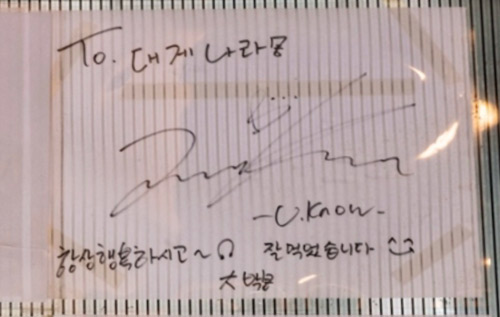 To. 대게나라
-U.Know-
항상행복하시고~ 잘먹었습니다
大박